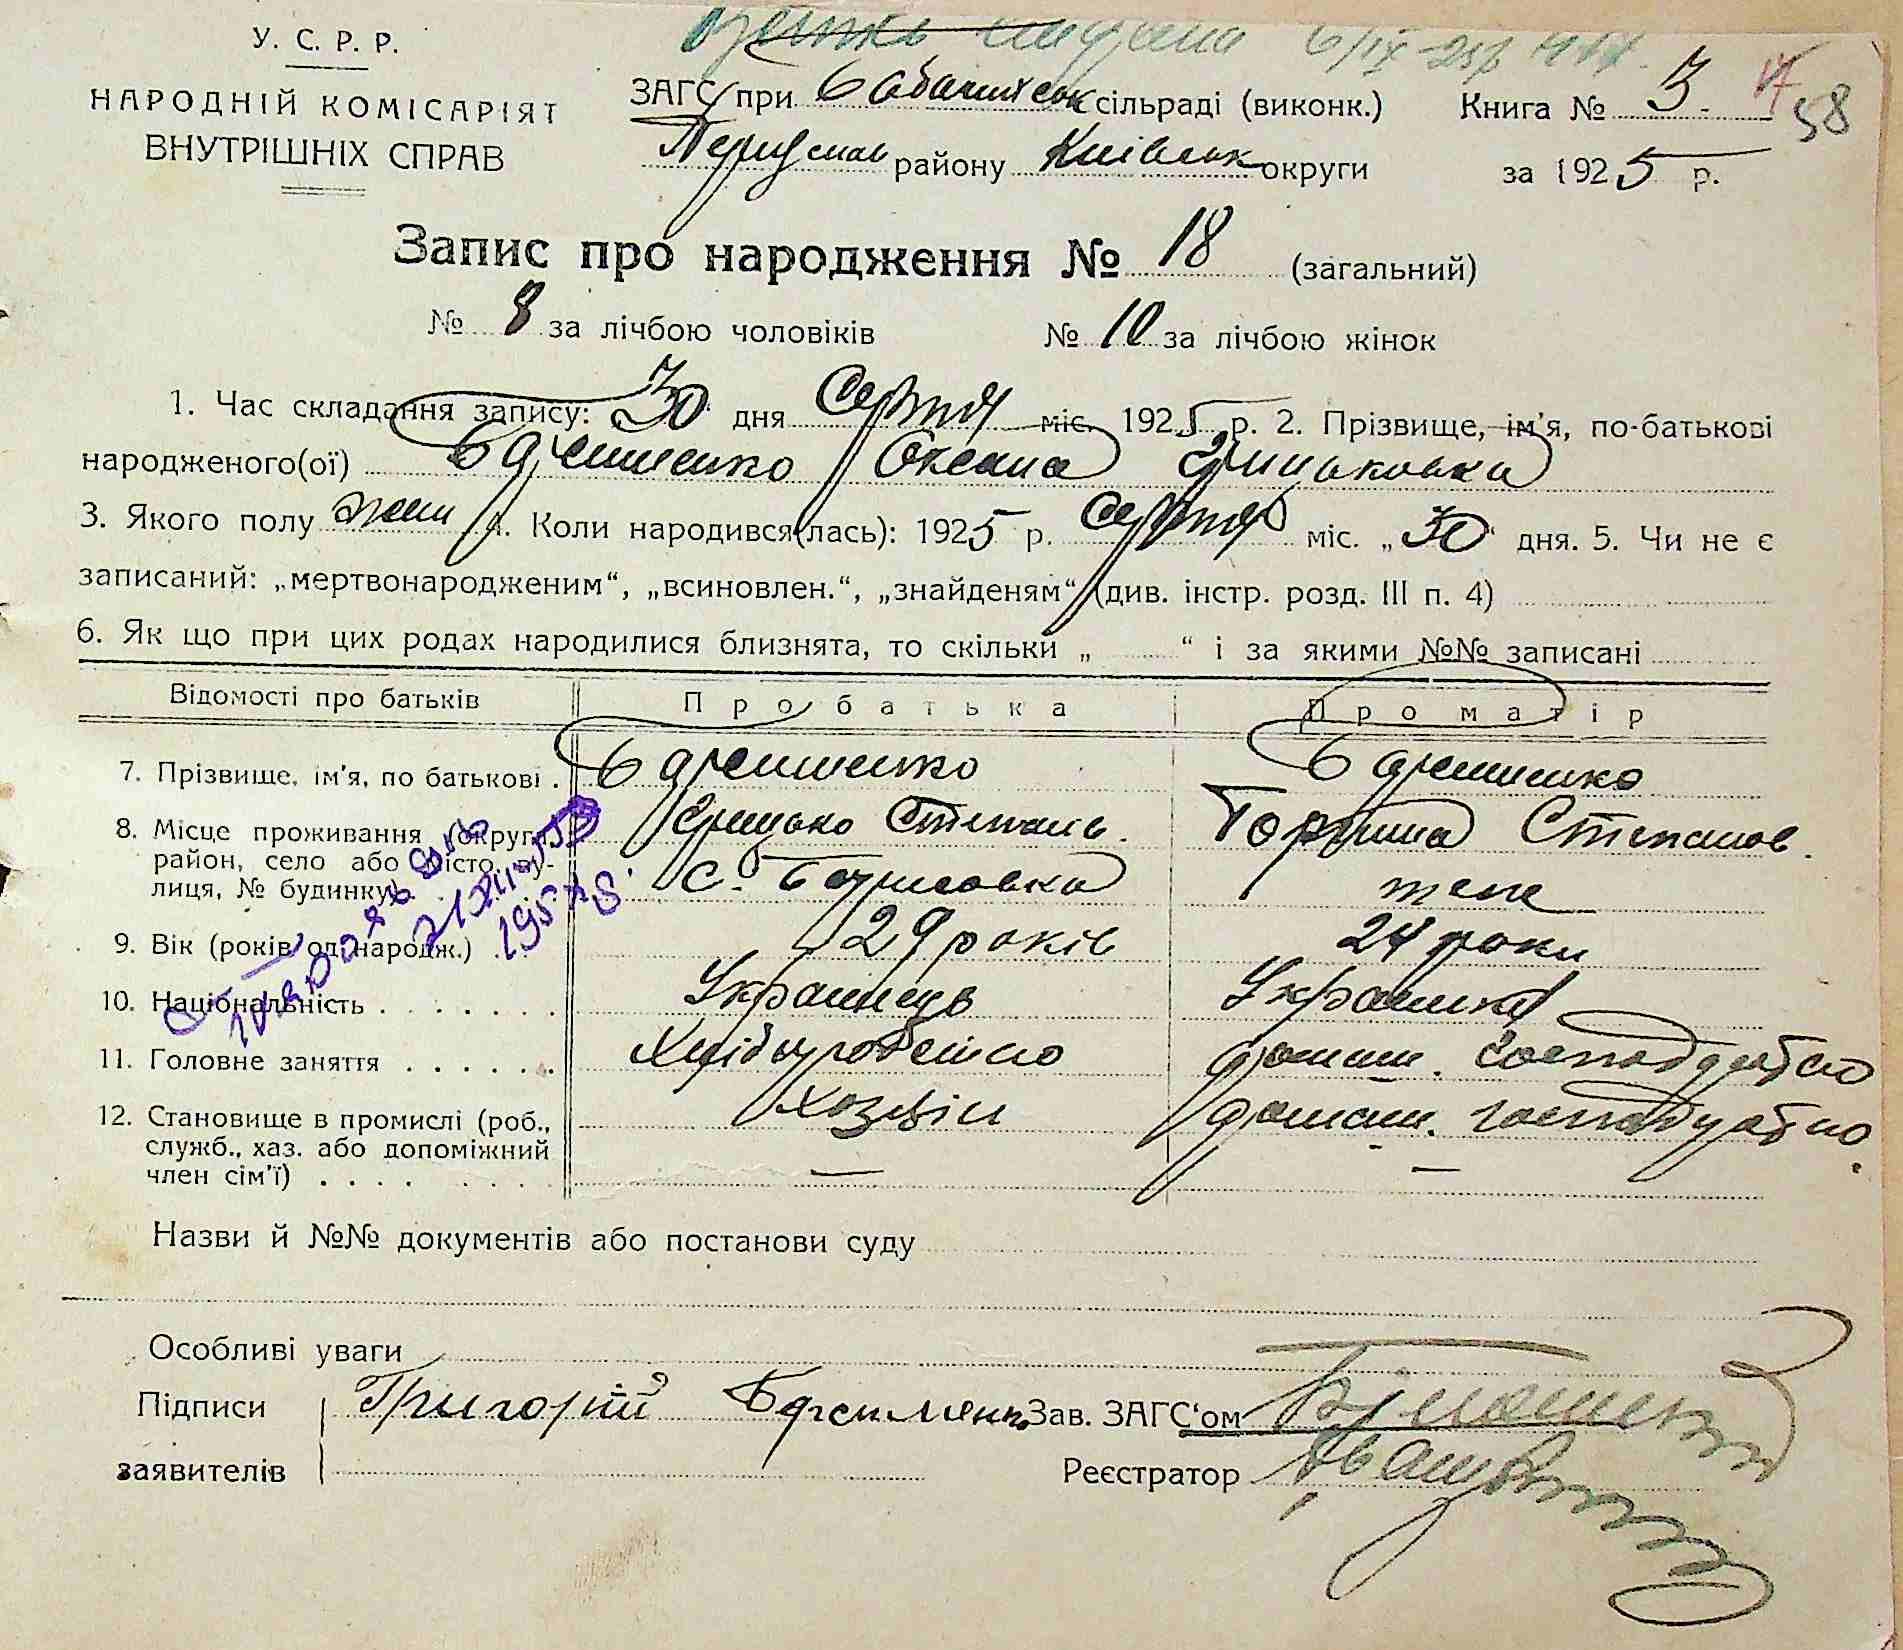 У. С. Р. Р.
НАРОДНІЙ КОМІСАРІЯТ
ВНУТРІШНІХ СПРАВ
6/IX-25р
ЗАГС при сільраді (виконк.) Книга № 3. 17 58
району Київськ округи за 1925 р.
Запис про народження № 18 (загальний)
№ 8 за лічбою чоловіків № 10 за лічбою жінок
1. Час складання запису: „30“ дня Серпня міс. 1925 р. 2. Прізвище, ім'я, по-батькові
народженого(ої) Оксана Грицьковна
3. Якого полу жін 4. Коли народився(лась): 1925 р. Серпня міс. „30“ дня. 5. Чи не є
записаний: „мертвонародженим“, „всиновлен.“, „знайденям“ (див. інстр. розд. III п. 4)
6. Як що при цих родах народилися близнята, то скільки „ “ і за якими №№ записані
Відомості про батьків Про батька Про матір
7. Прізвище, ім'я, по батькові .
8. Місце проживання (округа, Грицько Степань. Степанов.
район, село або місто, ву-
лиця, № будинку) с. Борисовка теж
9. Вік (років од народж.) . . 29 років 24 роки
10. Національність . . . . . . . Українець Українка
11. Головне заняття . . . . . . Хліборобство домаш. господарство
12. Становище в промислі (роб., хозяїн домаш. господарство.
служб., хаз. або допоміжний
член сім'ї) . . . . — —
Назви й №№ документів або постанови суду
Особливі уваги
Підписи Григорий Зав. ЗАГС'ом
заявителів Реєстратор